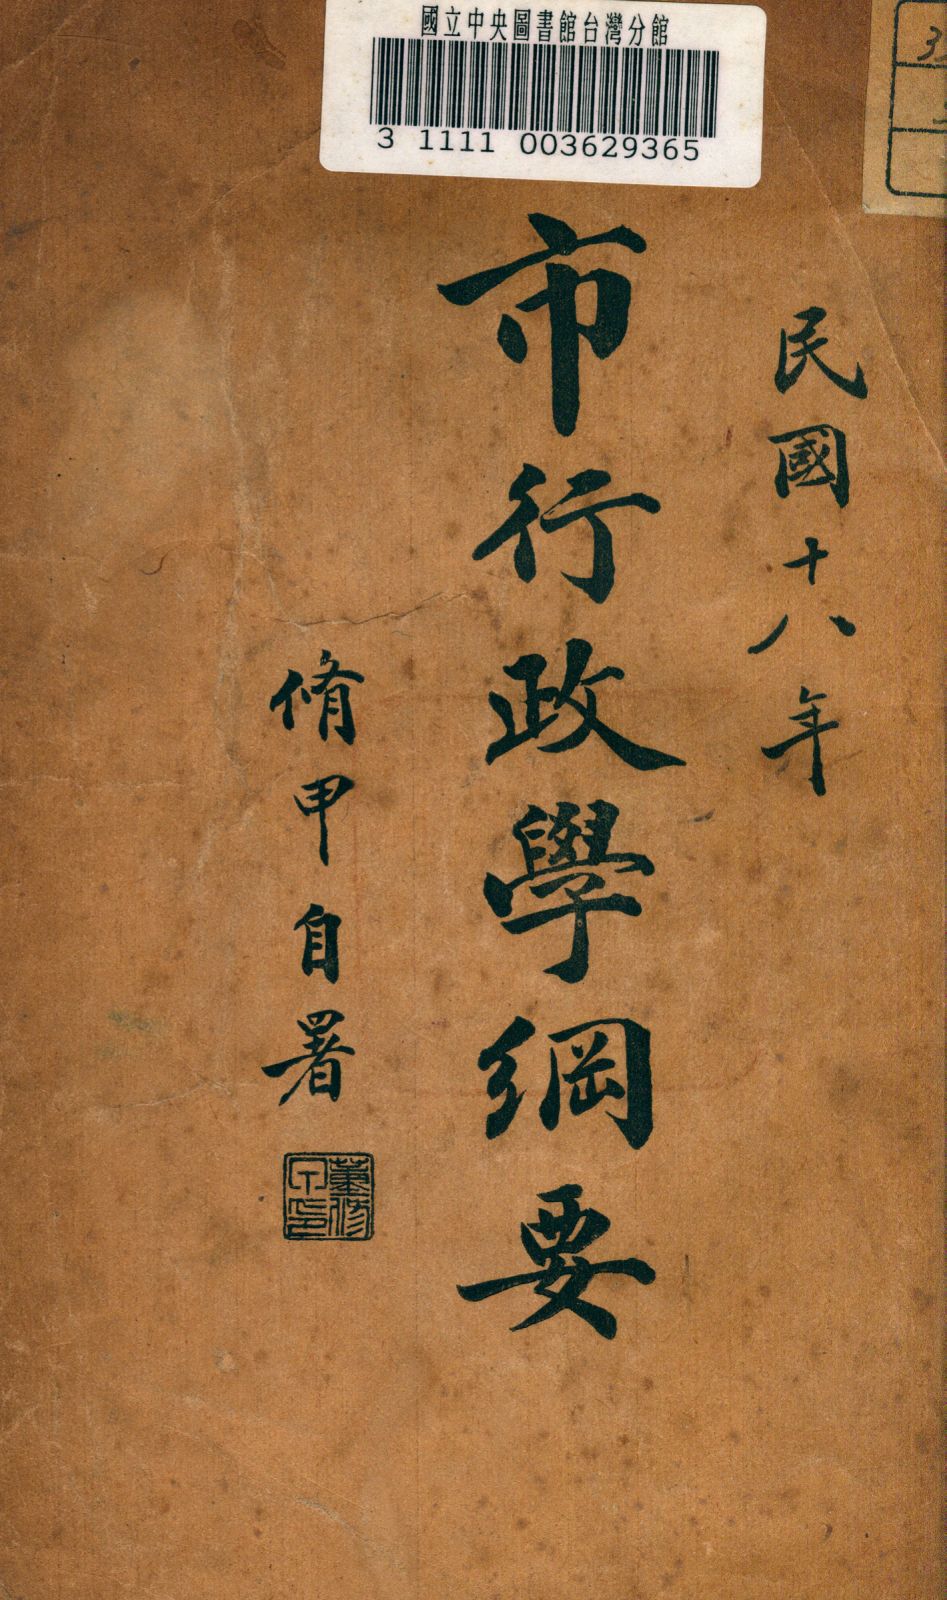 國立中央圖書館台灣分館
3 1111 003629365
民國十八年
市行政學綱要
脩甲自署
董修
甲印